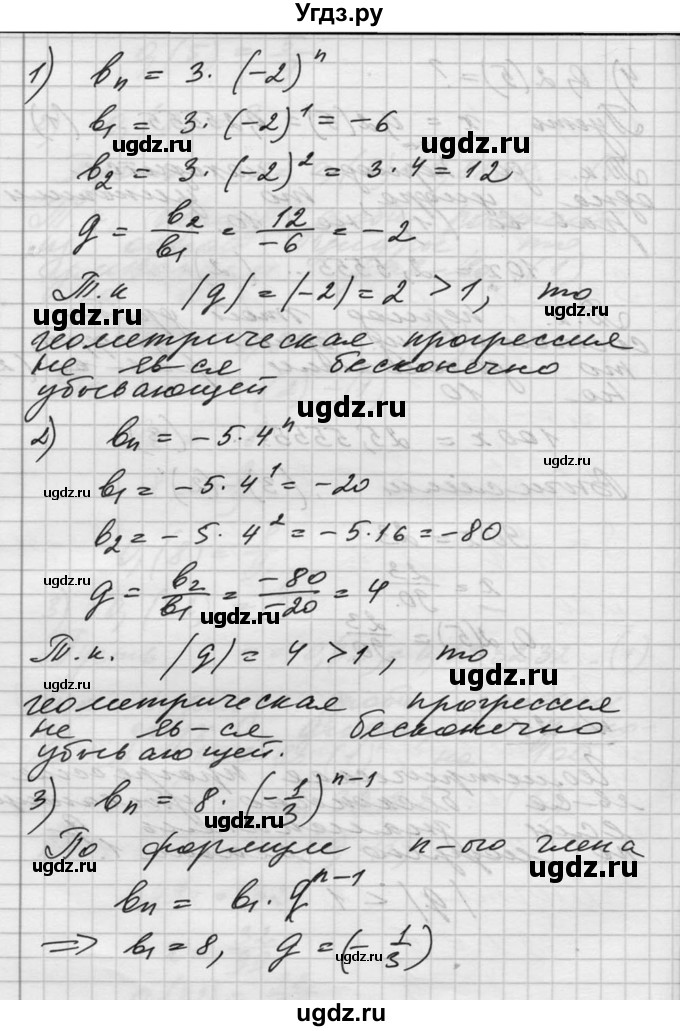 Угдз.ру
1) bn = 3 · (-2)^n
b1 = 3 · (-2)^1 = -6
ugdz.ru
ugdz.ru
b2 = 3 · (-2)^2 = 3 · 4 = 12
ugdz.ru
g = b2/b1 = 12/-6 = -2
ugdz.ru
Т.к |g| = |-2| = 2 > 1, то
ugdz.ru
ugdz.ru
геометрическая прогрессия
не яв-ся бесконечно
убывающей
ugdz.ru
2) bn = -5 · 4^n
ugdz.ru
b1 = -5 · 4^1 = -20
ugdz.ru
b2 = -5 · 4^2 = -5 · 16 = -80
g = b2/b1 = -80/-20 = 4
ugdz.ru
ugdz.ru
Т.к. |g| = 4 > 1, то
ugdz.ru
ugdz.ru
геометрическая прогрессия
не яв-ся бесконечно
убывающей.
3) bn = 8 · (-1/3)^n-1
ugdz.ru
По формуле n-ого члена
ugdz.ru
ugdz.ru
bn = b1 · g^n-1
=> b1 = 8, g = (-1/3)
ugdz.ru